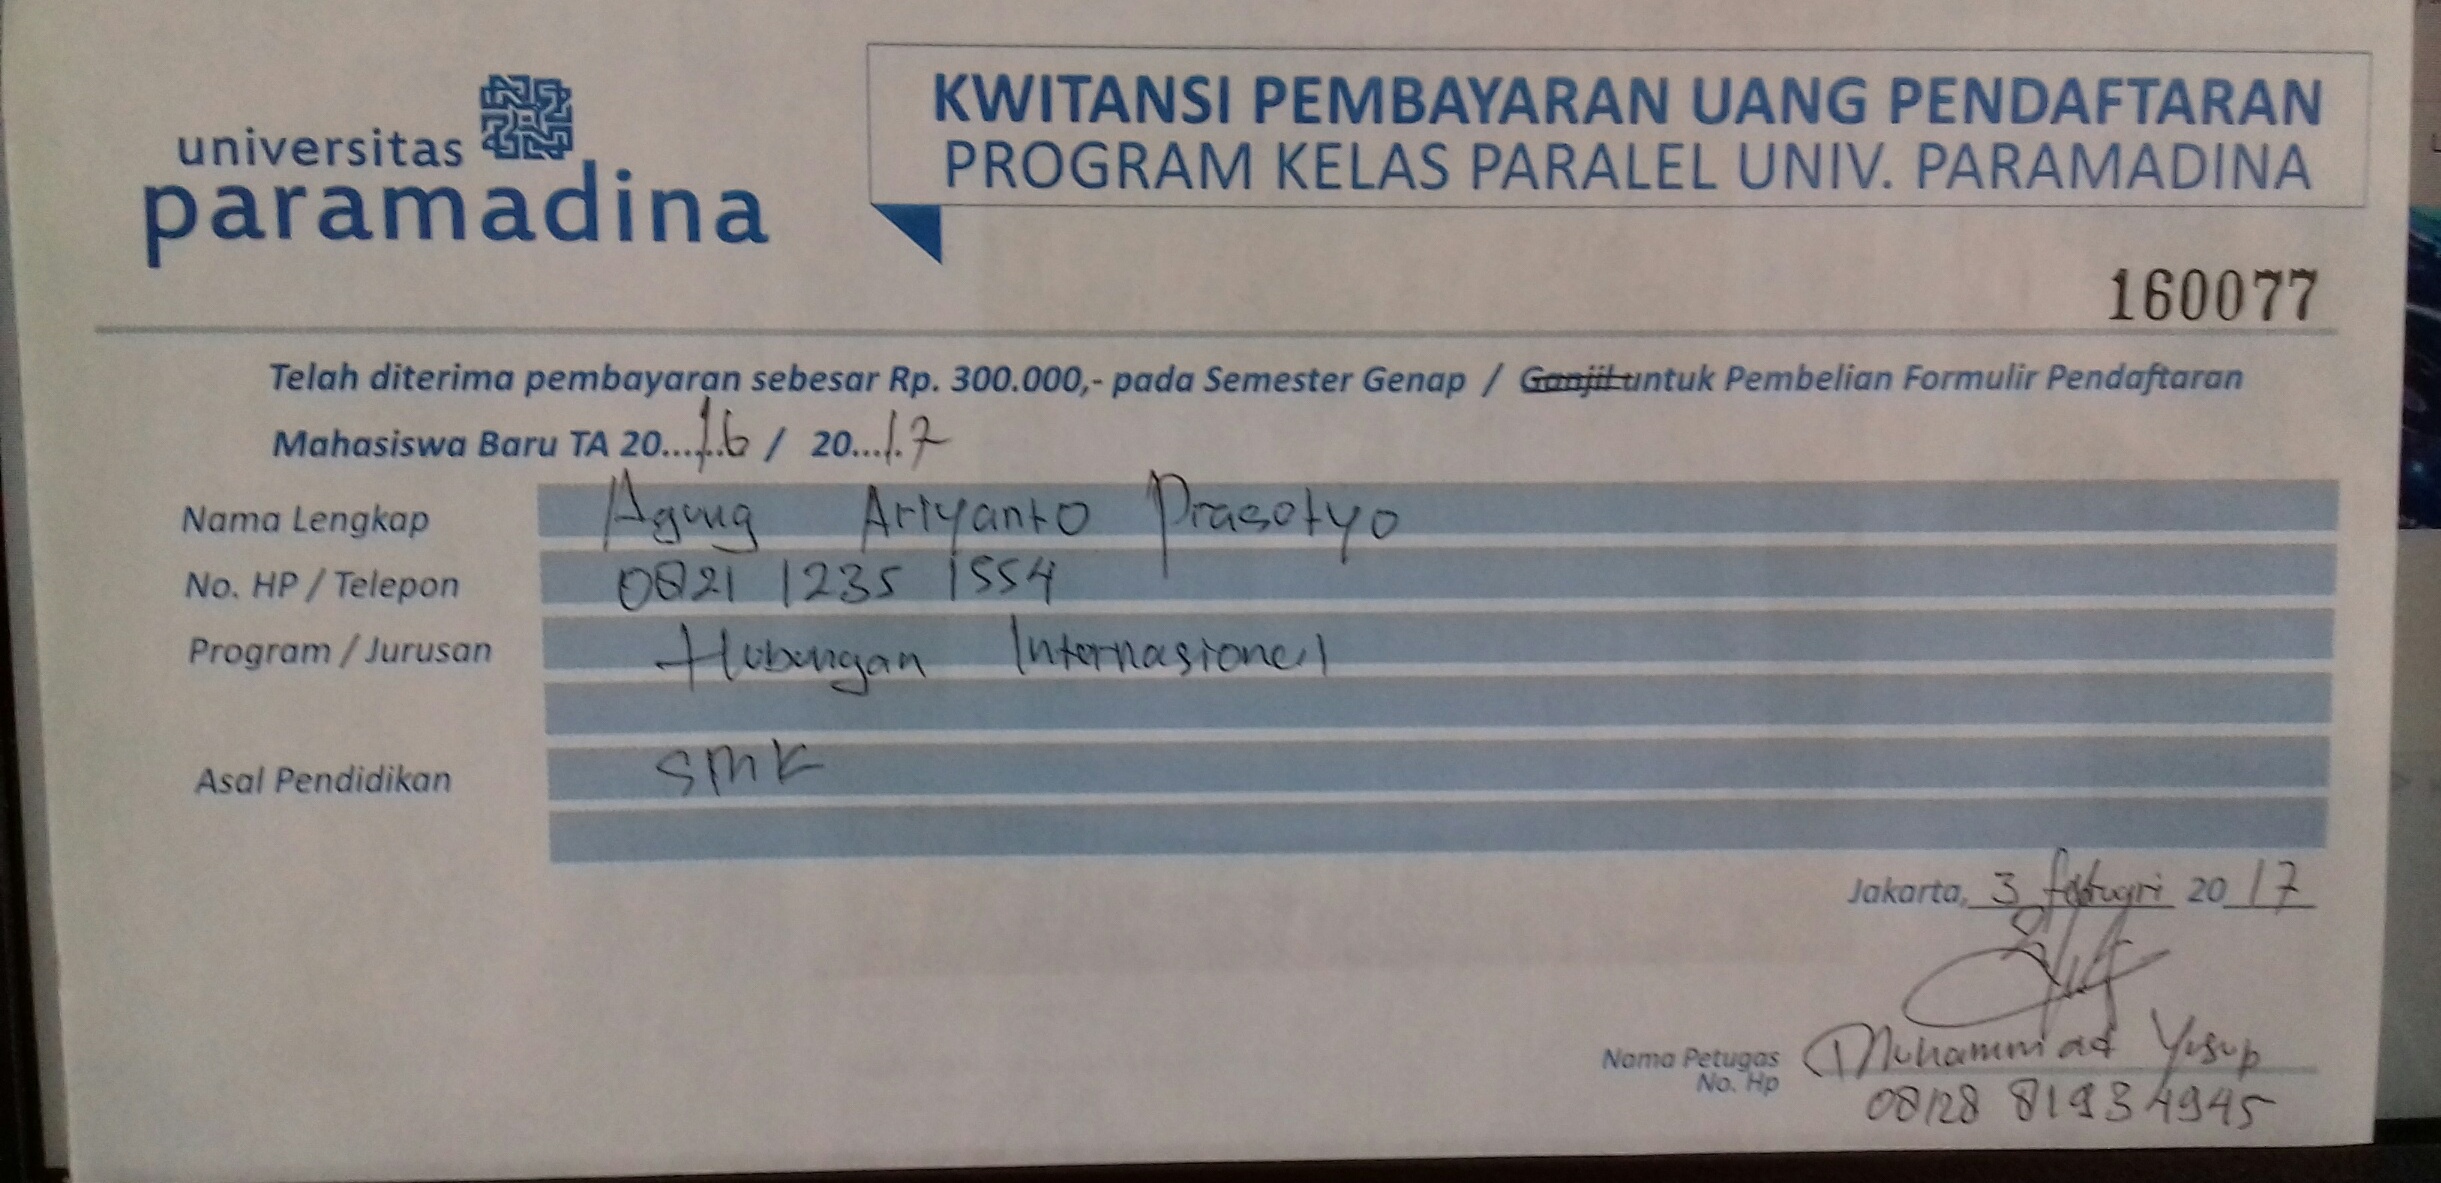 universitas
paramadina
KWITANSI PEMBAYARAN UANG PENDAFTARAN
PROGRAM KELAS PARALEL UNIV. PARAMADINA
160077
Telah diterima pembayaran sebesar Rp. 300.000,- pada Semester Genap / Ganjil untuk Pembelian Formulir Pendaftaran
Mahasiswa Baru TA 20...16 / 20...17
Nama Lengkap Agung Ariyanto Prasetyo
No. HP / Telepon 0821 1235 1554
Program / Jurusan Hubungan Internasional
Asal Pendidikan SMK
Jakarta, 3 februari 20 17
Nama Petugas Muhammad Yusup
No. Hp 08128 8193 4945